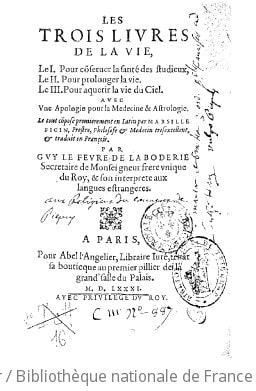 LES
TROIS LIVRES
DE LA VIE,
Le I. Pour cõseruer la santé des studieux.
Le II. Pour prolonger la vie.
Le III. Pour aquerir la vie du Ciel.
AVEC
Vne Apologie pour la Medecine & Astrologie.
Le tout cõposé premierement en Latin par MARSILLE
FICIN, Prestre, Philosofe & Medecin tresexcellent,
& traduit en François.
PAR
GVY LE FEVRE DE LA BODERIE
Secretaire de Monseigneur frere vnique
du Roy, & son interprete aux
langues estrangeres.
A PARIS,
Pour Abel l'Angelier, Libraire Iuré, tenãt
sa boutique au premier pillier de la
grand' salle du Palais.
M. D. LXXXI.
AVEC PRIVILEGE DV ROY.
16
r / Bibliothèque nationale de France